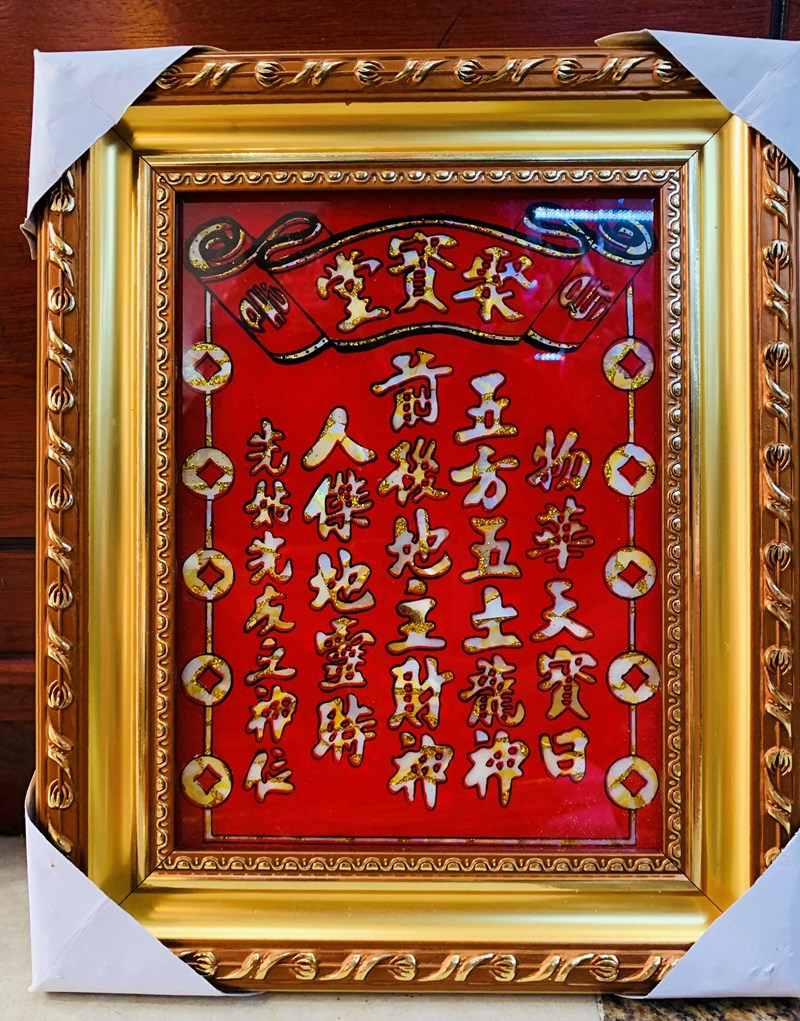 聚寶堂
物華天寶日
五方五土龍神
前後地主財神
人傑地靈時
先先友之神位